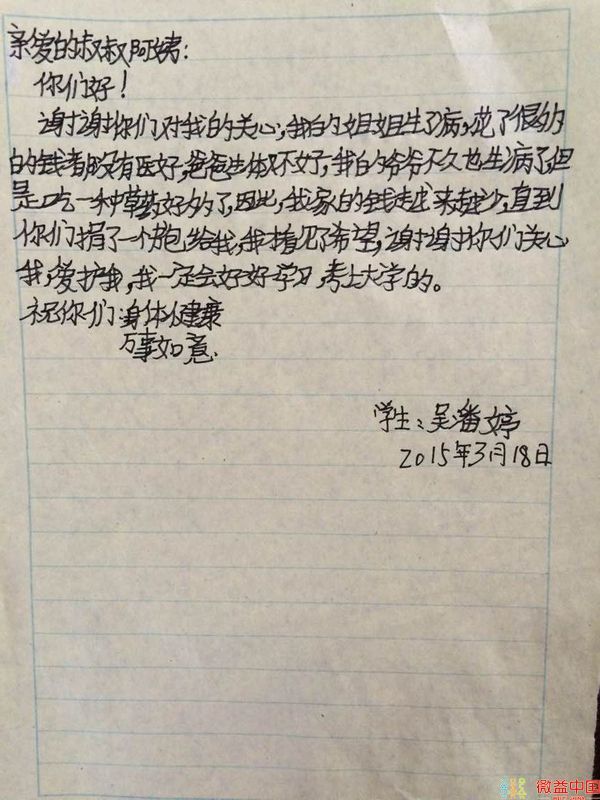 亲爱的叔叔阿姨:
你们好!
谢谢你们对我的关心,我的姐姐生了病,花了很多的
的钱都没有医好,爸爸生体不好,我的爷爷不久也生病了,但
是吃一种草药好多了,因此,我家的钱越来越少,直到
你们捐了一个包给我,我看见了希望,谢谢你们关心
我,爱护我,我一定会好好学习,考上大学的。
祝你们:身体健康
万事如意.
学生:吴潘婷
2015年3月18日
微益中国